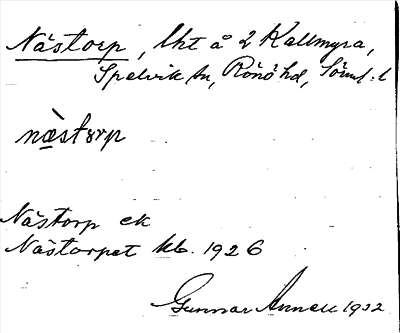 Nästorp, lht å 2 Kallmyra,
Spelvik sn, Rönö hd, Sörml. l
næstorp
Nästorp ek
Nästorpet kb. 1926
Gunnar Annell 1932